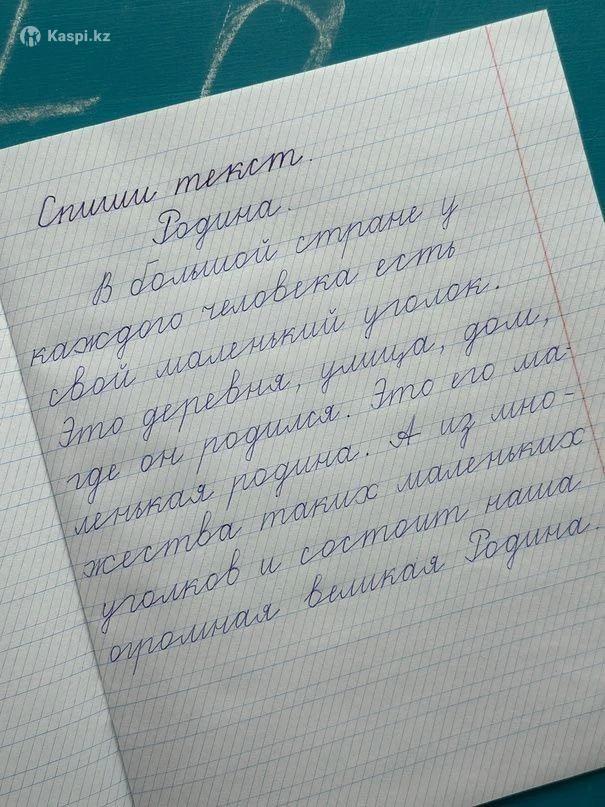 Kaspi.kz
Спиши текст.
Родина.
В большой стране у
каждого человека есть
свой маленький уголок.
Это деревня, улица, дом,
где он родился. Это его ма-
ленькая родина. А из мно-
жества таких маленьких
уголков и состоит наша
огромная великая Родина.